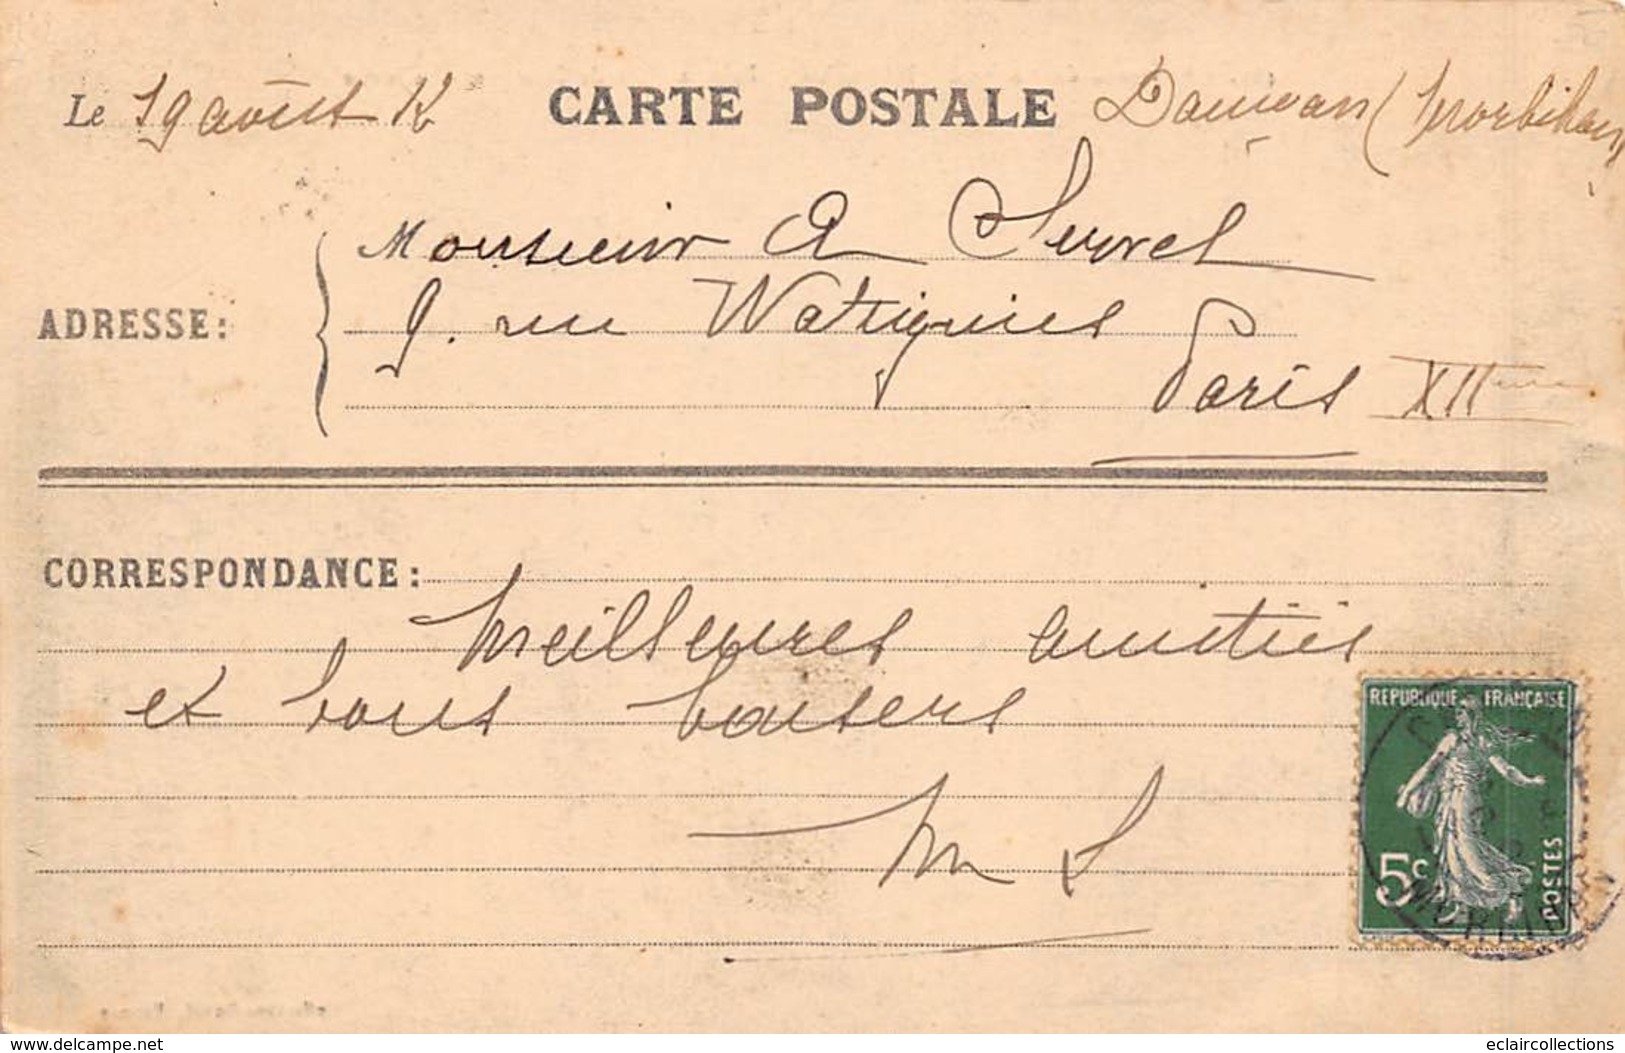 Le 19 août 12 CARTE POSTALE Damgan (Morbihan)
Monsieur A
ADRESSE: 9. rue Watignies
Paris XIIème
CORRESPONDANCE:
Meilleures amitiés
et bons baisers
M S
REPUBLIQUE FRANÇAISE
5c POSTES
MORBIHAN
eclaircollections